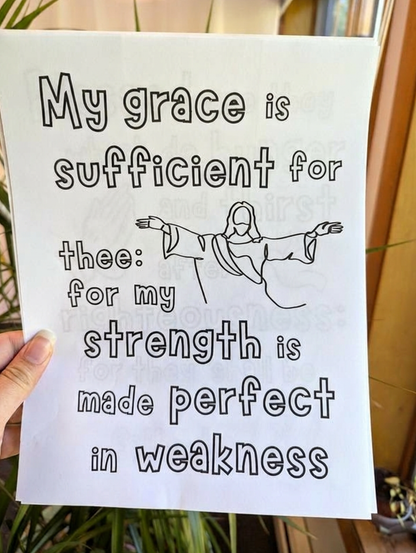 My grace is
sufficient for
thee:
for my
strength is
made perfect
in weakness